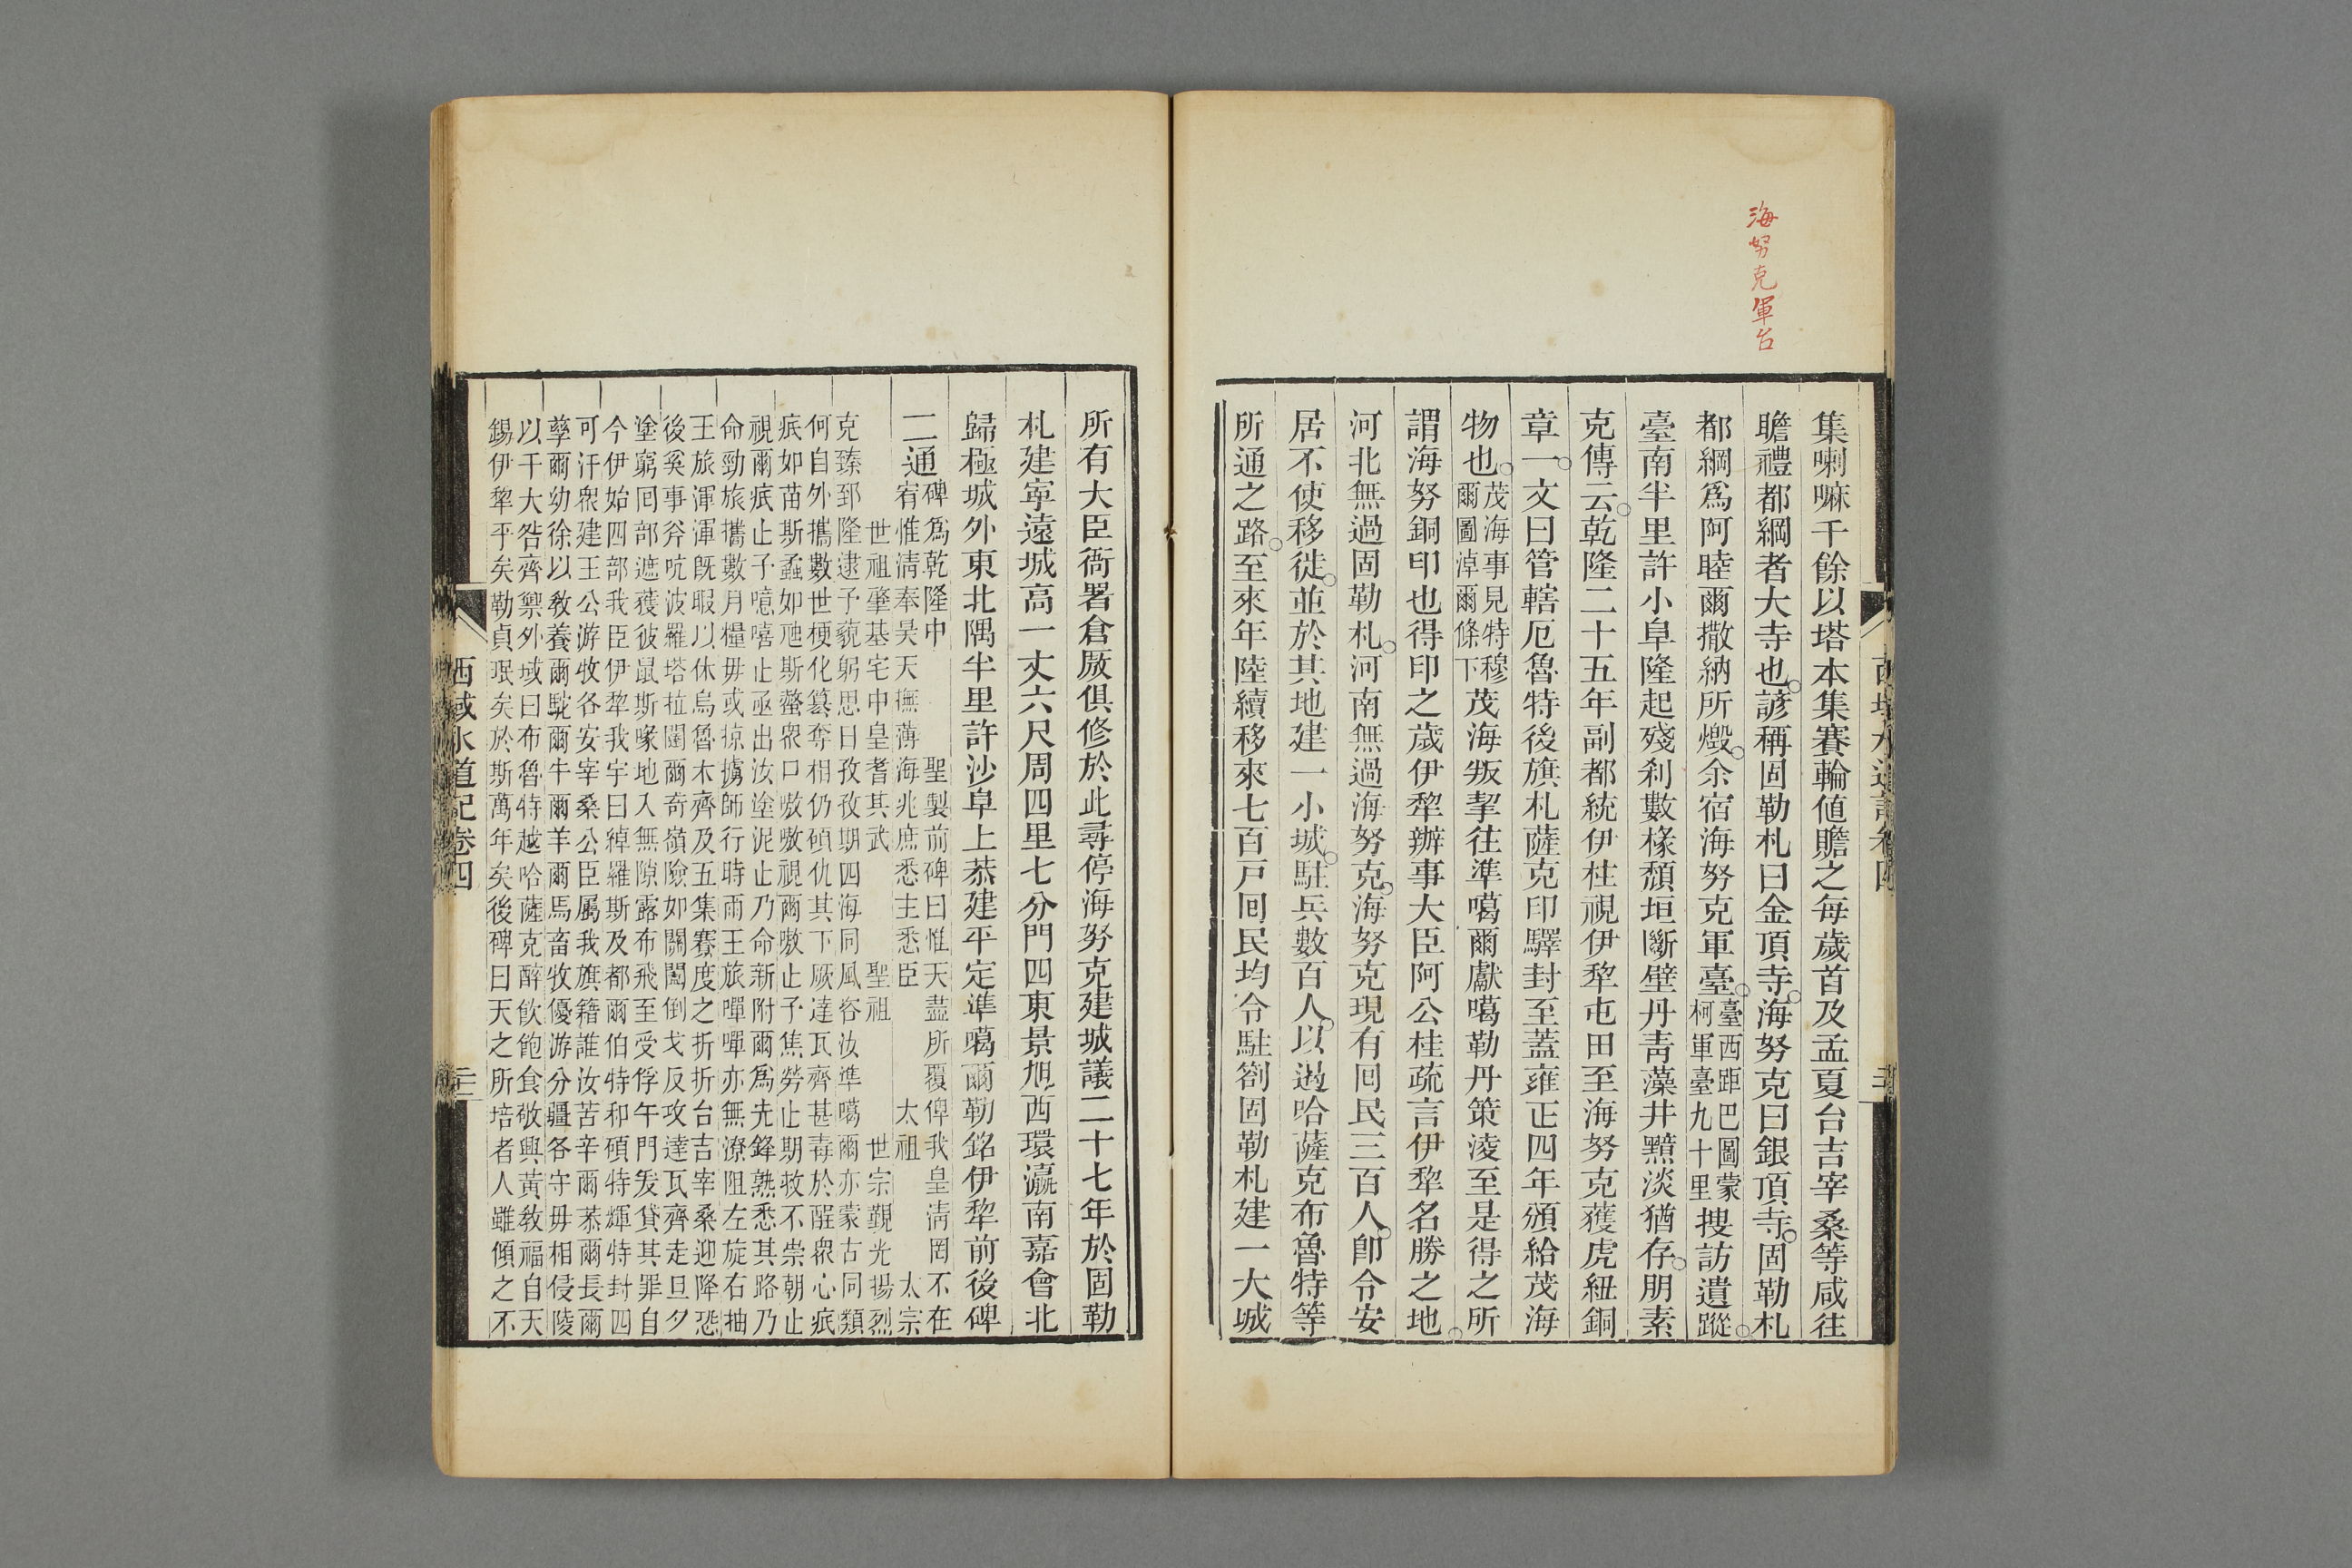 海努克軍台
集喇嘛千餘以塔本集賽輪値贍之每歲首及孟夏台吉宰桑等咸往
瞻禮都綱者大寺也諺稱固勒札曰金頂寺海努克曰銀頂寺固勒札
都綱爲阿睦爾撒納所燬余宿海努克軍臺臺西距巴圖蒙柯軍臺九十里搜訪遺蹤
臺南半里許小阜隆起殘刹數椽頽垣斷壁丹靑藻井黯淡猶存朋素
克傳云乾隆二十五年副都統伊柱視伊犂屯田至海努克獲虎紐銅
章一文曰管轄厄魯特後旗札薩克印驛封至蓋雍正四年頒給茂海
物也茂海事見特穆爾圖淖爾條下茂海叛挈往準噶爾獻噶勒丹策淩至是得之所
謂海努銅印也得印之歲伊犂辦事大臣阿公桂疏言伊犂名勝之地
河北無過固勒札河南無過海努克海努克現有囘民三百人卽令安
居不使移徙並於其地建一小城駐兵數百人以遏哈薩克布魯特等
所通之路至來年陸續移來七百戸囘民均令駐劄固勒札建一大城
西域水道記卷四
所有大臣衙署倉廒俱修於此尋停海努克建城議二十七年於固勒
札建寧遠城高一丈六尺周四里七分門四東景旭西環瀛南嘉會北
歸極城外東北隅半里許沙阜上恭建平定準噶爾勒銘伊犂前後碑
二通碑爲乾隆中 聖製前碑曰惟天蓋所覆俾我皇淸罔不在
宥惟淸奉昊天撫薄海兆庶悉主悉臣 太祖 太宗
世祖肇基宅中皇耆其武 聖祖 世宗覲光揚烈
克臻郅隆逮予藐躬思日孜孜期四海同風咨汝準噶爾亦蒙古同類
何自外攜數世梗化簒奪相仍碩仇其下厥達瓦齊甚毒於酲衆心泯
泯如苗斯蟊如虺斯螫衆口嗷嗷視爾嗷止予焦勞止期救不崇朝止
視爾泯止予噫嘻止亟出汝塗泥止乃命新附爾爲先鋒熟悉其路乃
命勁旅攜數月糧毋或掠擄師行時雨王旅嘽嘽亦無潦阻左旋右抽
王旅渾渾旣暇以休烏魯木齊及五集賽度之折折台吉宰桑迎降恐
後奚事斧吭波羅塔拉闥爾奇嶺險如關闔倒戈反攻達瓦齊走旦夕
塗窮囘部遮獲彼鼠斯喙地入無隙露布飛至受俘午門爰貸其罪自
今伊始四部我臣伊犂我宇曰綽羅斯及都爾伯特和碩特輝特封四
可汗衆建王公游牧各安宰桑公臣屬我旗籍誰汝苦辛爾恭爾長爾
孳爾幼徐以敎養爾駝爾牛爾羊爾馬畜牧優游分疆各守毋相侵陵
以干大咎齊禦外域曰布魯特越哈薩克醉飮飽食敬興黃敎福自天
錫伊犂平矣勒貞珉矣於斯萬年矣後碑曰天之所培者人雖傾之不
西域水道記卷四